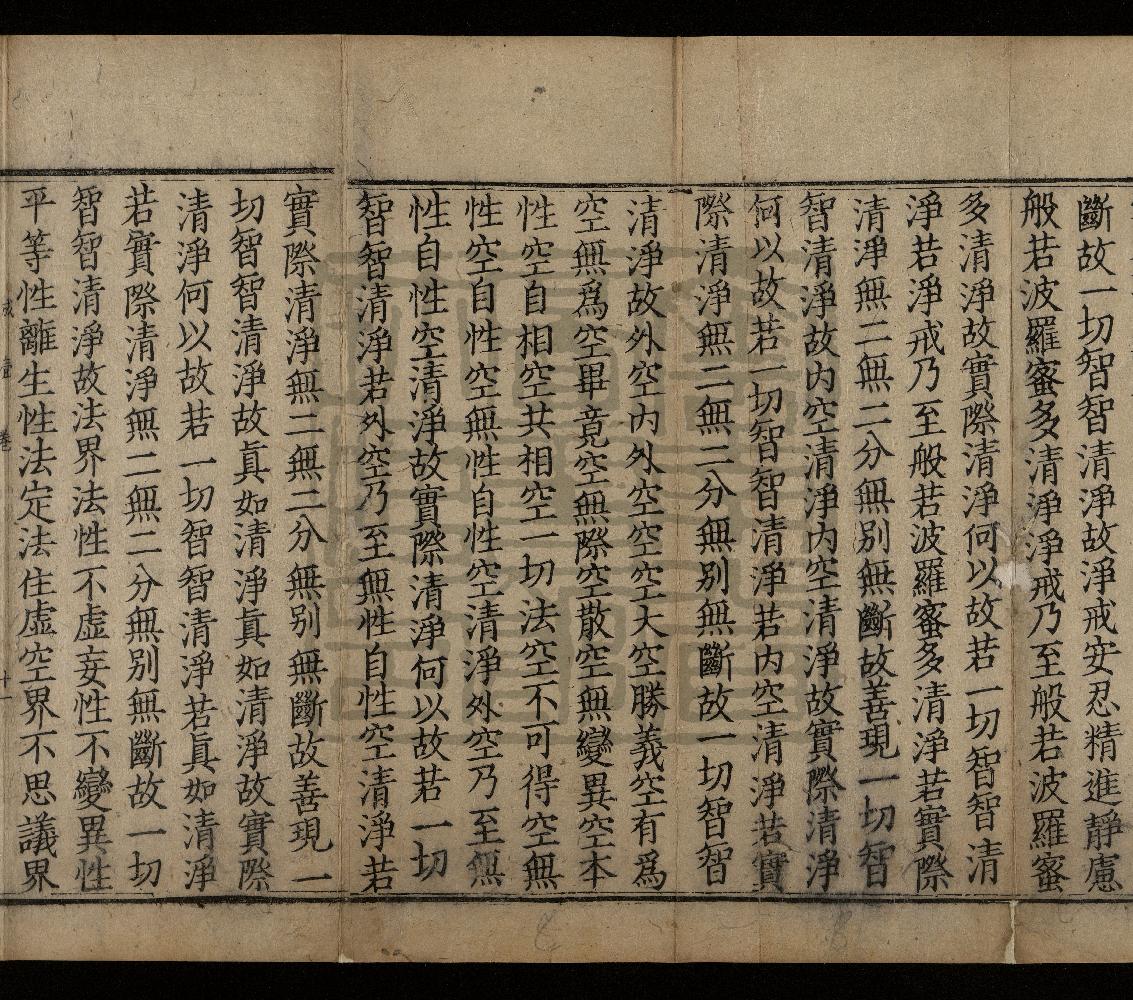 斷故一切智智清淨故淨戒安忍精進靜慮
般若波羅蜜多清淨淨戒乃至般若波羅蜜
多清淨故實際清淨何以故若一切智智清
淨若淨戒乃至般若波羅蜜多清淨若實際
清淨無二無二分無別無斷故善現一切智
智清淨故內空清淨內空清淨故實際清淨
何以故若一切智智清淨若內空清淨若實
際清淨無二無二分無別無斷故一切智智
清淨故外空內外空空空大空勝義空有爲
空無爲空畢竟空無際空散空無變異空本
性空自相空共相空一切法空不可得空無
性空自性空無性自性空清淨外空乃至無
性自性空清淨故實際清淨何以故若一切
智智清淨若外空乃至無性自性空清淨若
實際清淨無二無二分無別無斷故善現一
切智智清淨故真如清淨真如清淨故實際
清淨何以故若一切智智清淨若真如清淨
若實際清淨無二無二分無別無斷故一切
智智清淨故法界法性不虛妄性不變異性
平等性離生性法定法住虛空界不思議界
十一